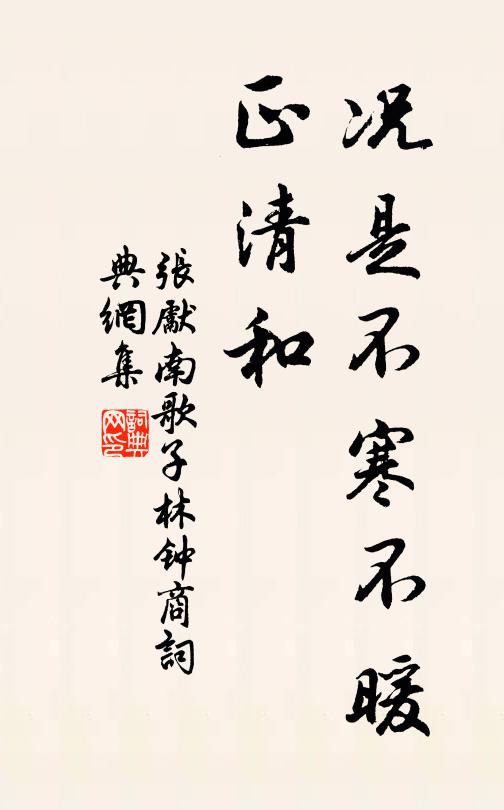 况是不寒不暖
正清和
張獻南歌子林钟商詞
典網集
詞典
网印